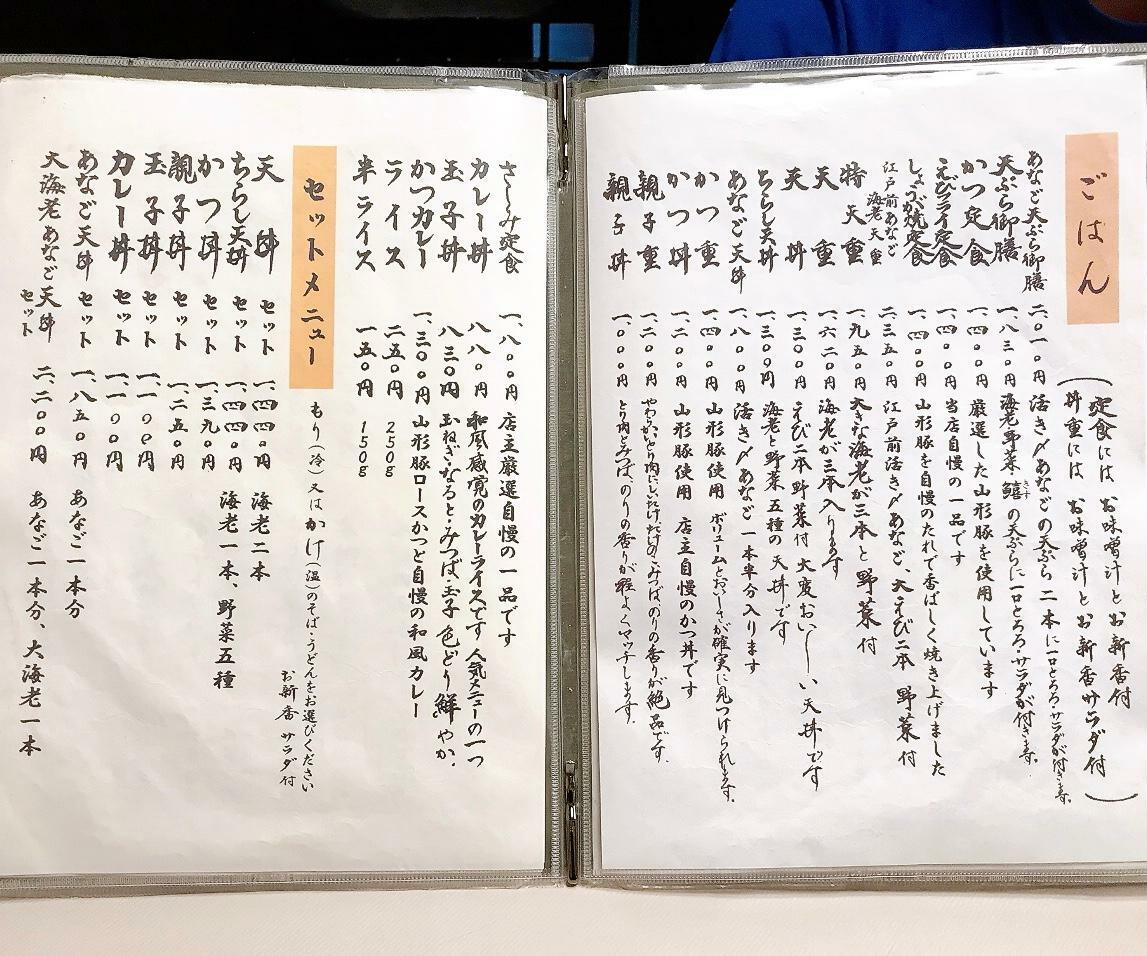 ごはん
（定食には お味噌汁とお新香付
丼重には お味噌汁とお新香サラダ付）
あなご天ぷら御膳 二、〇一〇円 活き〆あなごの天ぷら二本に一口とろろ・サラダが付きます。
天ぷら御膳 一、八三〇円 海老野菜・鱚の天ぷらに一口とろろ・サラダが付きます。
かつ定食 一、四〇〇円 厳選した山形豚を使用しています
えびフライ定食 一、四〇〇円 当店自慢の一品です
しょうが焼定食 一、四〇〇円 山形豚を自慢のたれで香ばしく焼き上げました
江戸前あなご海老天重 二、三五〇円 江戸前活き〆あなご、大えび二本 野菜付
特天重 一、九五〇円 大きな海老が三本と野菜付
天重 一、六二〇円 海老が三本入ります
天丼 一、三〇〇円 えび二本野菜付 大変おい〜しい天丼です
ちらし天丼 一、三〇〇円 海老と野菜五種の天丼です
あなご天丼 一、八〇〇円 活き〆あなご一本半分入ります
かつ重 一、四〇〇円 山形豚使用 ボリュームとおいしさが確実に見つけられます。
かつ丼 一、二〇〇円 山形豚使用 店主自慢のかつ丼です
親子重 一、二〇〇円 やわらかいとり肉にしいたけたけのこみつばのりの香りが絶品です。
親子丼 一、〇〇〇円 とり肉とみつば、のりの香りが程よくマッチします。
さしみ定食 一、八〇〇円 店主厳選自慢の一品です
カレー丼 八八〇円 和風感覚のカレーライスです 人気メニューの一つ
玉子丼 八三〇円 玉ねぎ・なると・みつば・玉子 色どり鮮やか。
かつカレー 一、三〇〇円 山形豚ロースかつと自慢の和風カレー
ライス 二五〇円 250g
半ライス 一五〇円 150g
セットメニュー もり（冷）又は かけ（温）のそば・うどんをお選びください
お新香 サラダ付
天丼セット 一、四四〇円 海老二本
ちらし天丼セット 一、四四〇円 海老一本、野菜五種
かつ丼セット 一、三九〇円
親子丼セット 一、二五〇円
玉子丼セット 一、一〇〇円
カレー丼セット 一、一〇〇円
あなご天丼セット 一、八五〇円 あなご一本分
大海老あなご天丼セット 二、二〇〇円 あなご一本分、大海老一本